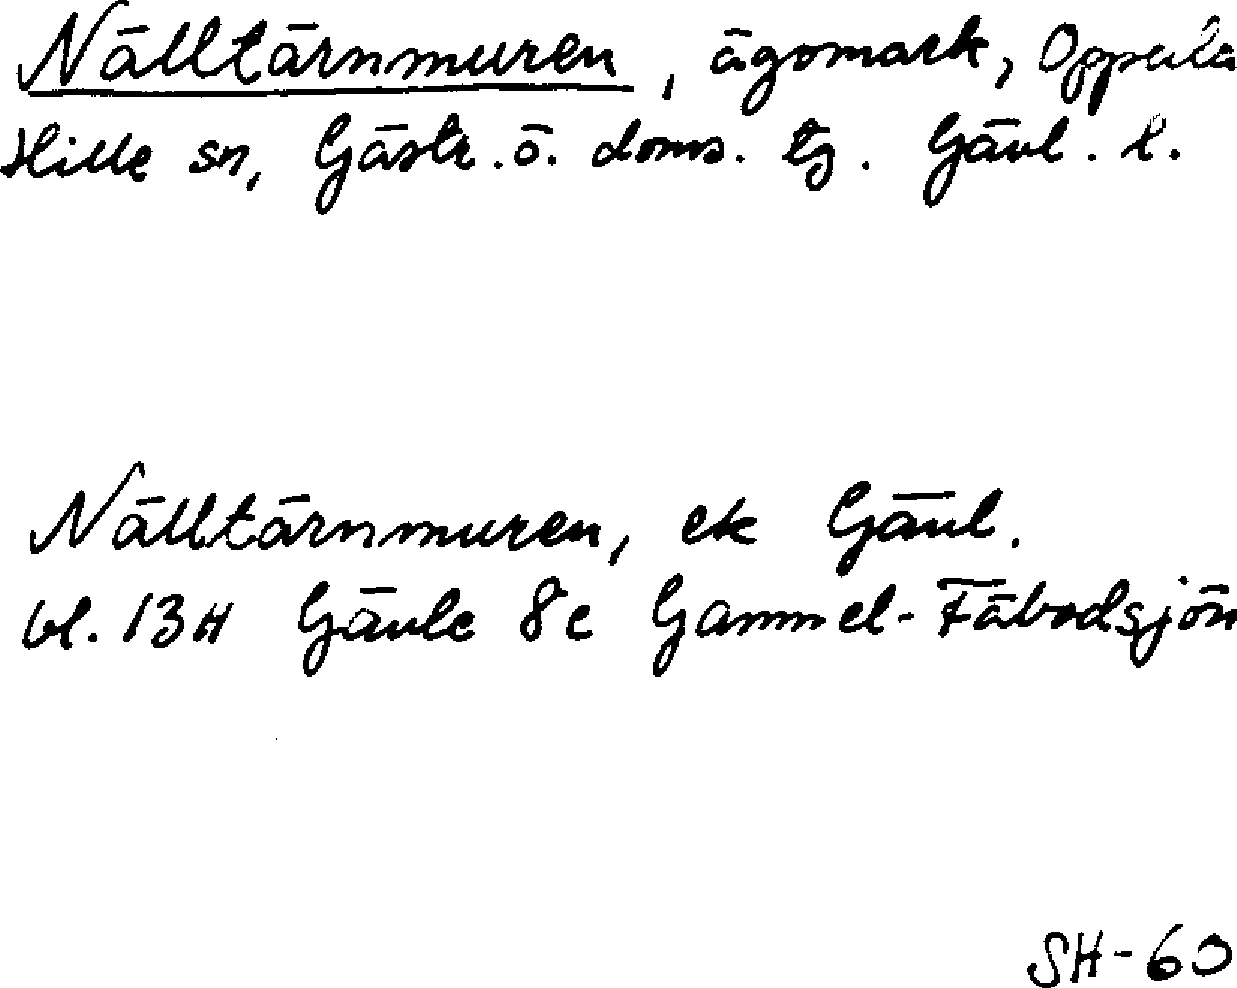 Nälltärnmuren, ägomark, Oppala
Hille sn, Gästr. ö. doms. tg. Gävl. l.
Nälltärnmuren, ek Gävl.
bl. 13H Gävle 8c Gammel-Fäbodsjön
SH-60